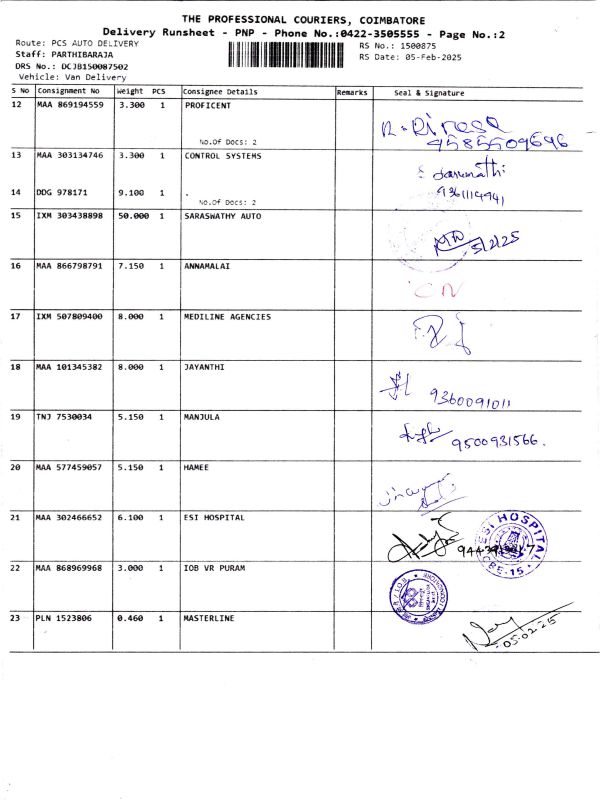 THE PROFESSIONAL COURIERS, COIMBATORE
Delivery Runsheet - PNP - Phone No.:0422-3505555 - Page No.:2
Route: PCS AUTO DELIVERY
RS No.: 1500875
Staff: PARTHIBARAJA
RS Date: 05-Feb-2025
DRS No.: DCJB150087502
Vehicle: Van Delivery
S No Consignment No Weight PCS Consignee Details Remarks Seal & Signature
12 MAA 869194559 3.300 1 PROFICENT
No.Of Docs: 2
9585509696
13 MAA 303134746 3.300 1 CONTROL SYSTEMS
14 DDG 978171 9.100 1 .
No.Of Docs: 2
15 IXM 303438898 50.000 1 SARASWATHY AUTO
5/2/25
16 MAA 866798791 7.150 1 ANNAMALAI
CN
17 IXM 507809400 8.000 1 MEDILINE AGENCIES
18 MAA 101345382 8.000 1 JAYANTHI
9360091011
19 TNJ 7530034 5.150 1 MANJULA
9500931566.
20 MAA 577459057 5.150 1 HAMEE
21 MAA 302466652 6.100 1 ESI HOSPITAL
ESI HOSPITAL
CBE-15
22 MAA 868969968 3.000 1 IOB VR PURAM
23 PLN 1523806 0.460 1 MASTERLINE
05-02-25